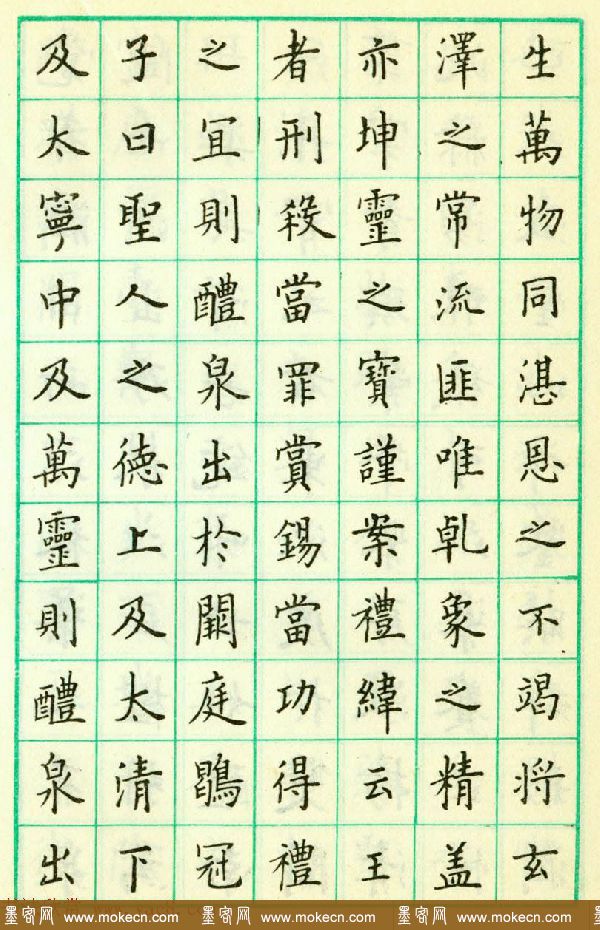 生萬物同湛恩之不竭将玄
澤之常流匪唯乹象之精盖
亦坤靈之寶謹案禮緯云王
者刑殺當罪賞錫當功得禮
之冝則醴泉出於闕庭鶡冠
子曰聖人之徳上及太清下
及太寧中及萬靈則醴泉出
墨客网 www.mokecn.com 墨客网 www.mokecn.com 墨客网 www.mokecn.com